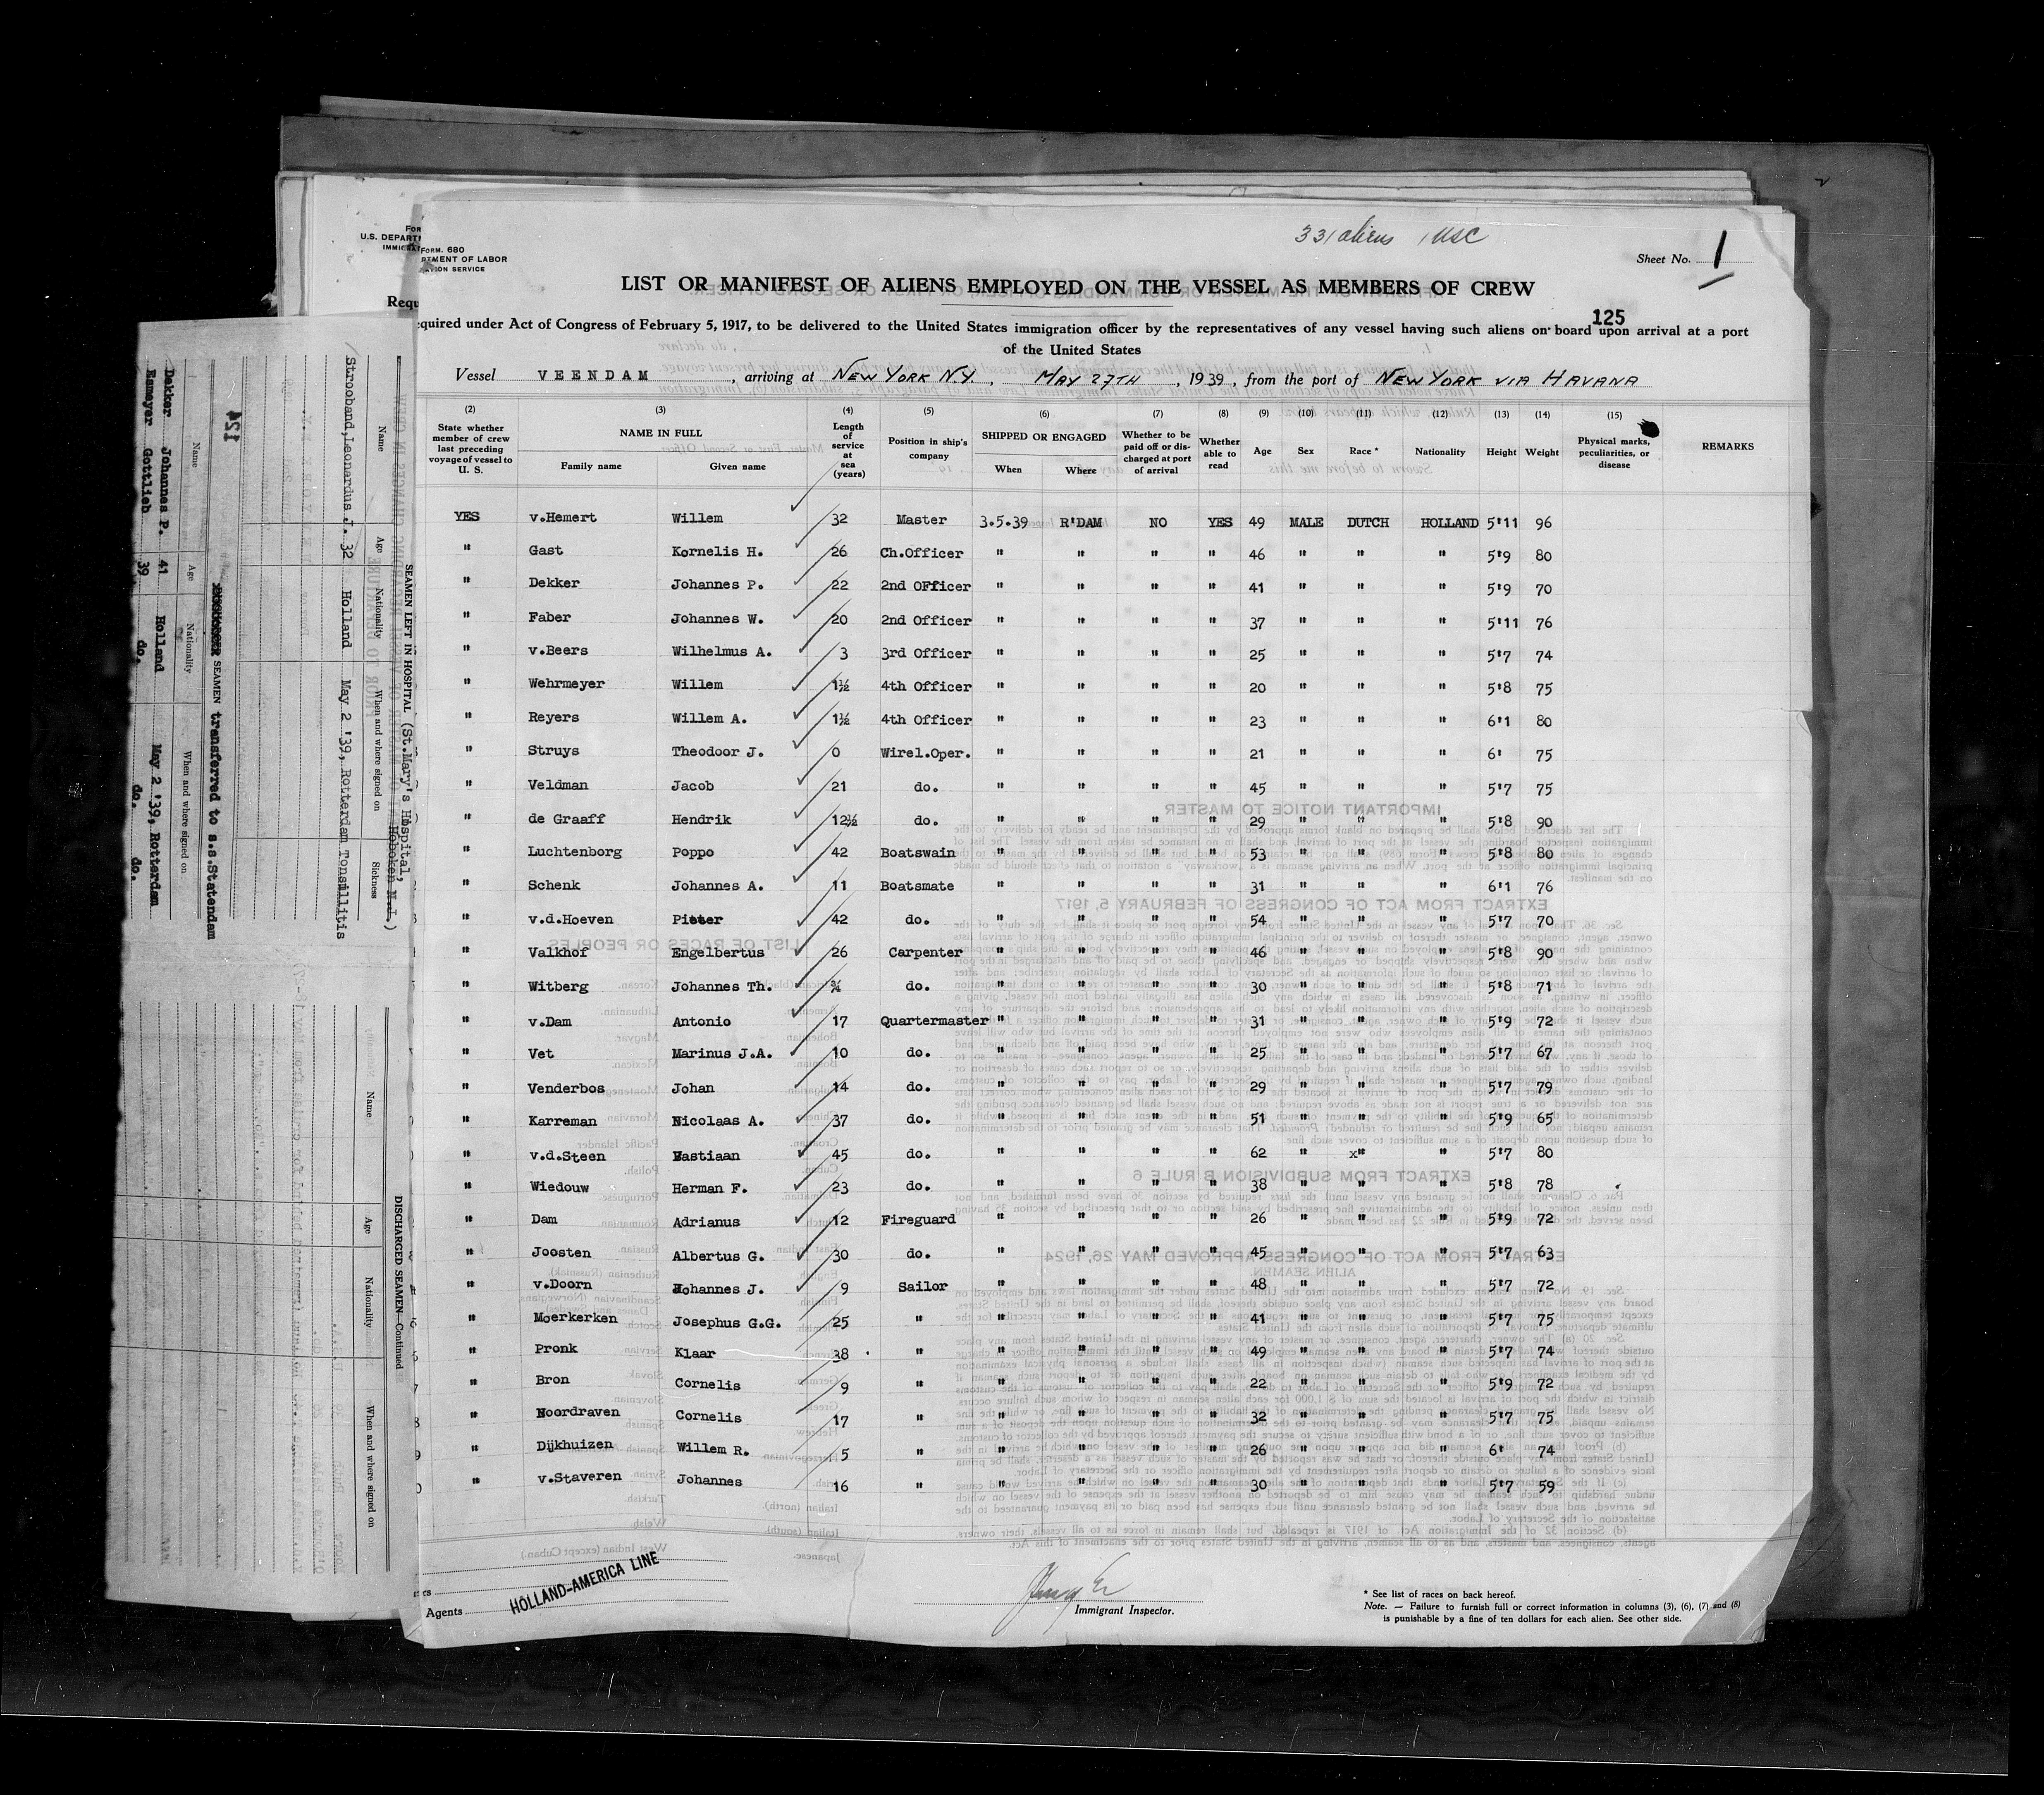 331 aliens 1 USC
FORM. 680
U.S. DEPARTMENT OF LABOR
IMMIGRATION SERVICE
Sheet No. 1
LIST OR MANIFEST OF ALIENS EMPLOYED ON THE VESSEL AS MEMBERS OF CREW
125
quired under Act of Congress of February 5, 1917, to be delivered to the United States immigration officer by the representatives of any vessel having such aliens on board upon arrival at a port
of the United States
Vessel VEENDAM, arriving at NEW YORK N.Y., MAY 27TH, 1939, from the port of NEW YORK VIA HAVANA
(2) (3) (4) (5) (6) (7) (8) (9) (10) (11) (12) (13) (14) (15)
State whether member of crew last preceding voyage of vessel to U. S. NAME IN FULL Family name Given name Length of service at sea (years) Position in ship's company SHIPPED OR ENGAGED When Where Whether to be paid off or discharged at port of arrival Whether able to read Age Sex Race * Nationality Height Weight Physical marks, peculiarities, or disease REMARKS
YES v.Hemert Willem 32 Master 3.5.39 R'DAM NO YES 49 MALE DUTCH HOLLAND 5'11 96
" Gast Kornelis H. 26 Ch.Officer " " " " 46 " " " 5'9 80
" Dekker Johannes P. 22 2nd OFficer " " " " 41 " " " 5'9 70
" Faber Johannes W. 20 2nd Officer " " " " 37 " " " 5'11 76
" v.Beers Wilhelmus A. 3 3rd Officer " " " " 25 " " " 5'7 74
" Wehrmeyer Willem 1½ 4th Officer " " " " 20 " " " 5'8 75
" Reyers Willem A. 1½ 4th Officer " " " " 23 " " " 6'1 80
" Struys Theodoor J. 0 Wirel.Oper. " " " " 21 " " " 6' 75
" Veldman Jacob 21 do. " " " " 45 " " " 5'7 75
" de Graaff Hendrik 12½ do. " " " " 29 " " " 5'8 90
" Luchtenborg Poppo 42 Boatswain " " " " 53 " " " 5'8 80
" Schenk Johannes A. 11 Boatsmate " " " " 31 " " " 6'1 76
" v.d.Hoeven Pieter 42 do. " " " " 54 " " " 5'7 70
" Valkhof Engelbertus 26 Carpenter " " " " 46 " " " 5'8 90
" Witberg Johannes Th. ¾ do. " " " " 30 " " " 5'8 71
" v.Dam Antonio 17 Quartermaster " " " " 31 " " " 5'9 72
" Vet Marinus J.A. 10 do. " " " " 25 " " " 5'7 67
" Venderbos Johan 14 do. " " " " 29 " " " 5'7 79
" Karreman Nicolaas A. 37 do. " " " " 51 " " " 5'9 65
" v.d.Steen Bastiaan 45 do. " " " " 62 " x" " 5'7 80
" Wiedouw Herman F. 23 do. " " " " 38 " " " 5'8 78
" Dam Adrianus 12 Fireguard " " " " 26 " " " 5'9 72
" Joosten Albertus G. 30 do. " " " " 45 " " " 5'7 63
" v.Doorn Johannes J. 9 Sailor " " " " 48 " " " 5'7 72
" Moerkerken Josephus G.G. 25 " " " " " 41 " " " 5'7 75
" Pronk Klaar 38 " " " " " 49 " " " 5'7 74
" Bron Cornelis 9 " " " " " 22 " " " 5'9 72
" Noordraven Cornelis 17 " " " " " 32 " " " 5'7 75
" Dijkhuizen Willem R. 5 " " " " " 26 " " " 6' 74
" v.Staveren Johannes 16 " " " " " 30 " " " 5'7 59
Agents HOLLAND-AMERICA LINE
Immigrant Inspector.
* See list of races on back hereof.
Note. — Failure to furnish full or correct information in columns (3), (6), (7) and (8)
is punishable by a fine of ten dollars for each alien. See other side.
SEAMEN LEFT IN HOSPITAL (St.Mary's Hospital,
Hoboken N.J.)
Name Age Nationality When and where signed on Sickness
Strooband,Leonardus J. 32 Holland May 2 '39, Rotterdam Tonsillitis
124
SEAMEN transferred to s.s.Statendam
Name Age Nationality When and where signed on
Dekker Johannes P. 41 Holland May 2 '39, Rotterdam
Esmeyer Gottlieb 39 do. do. do.
DISCHARGED SEAMEN—Continued
Name Age Nationality When and where signed on